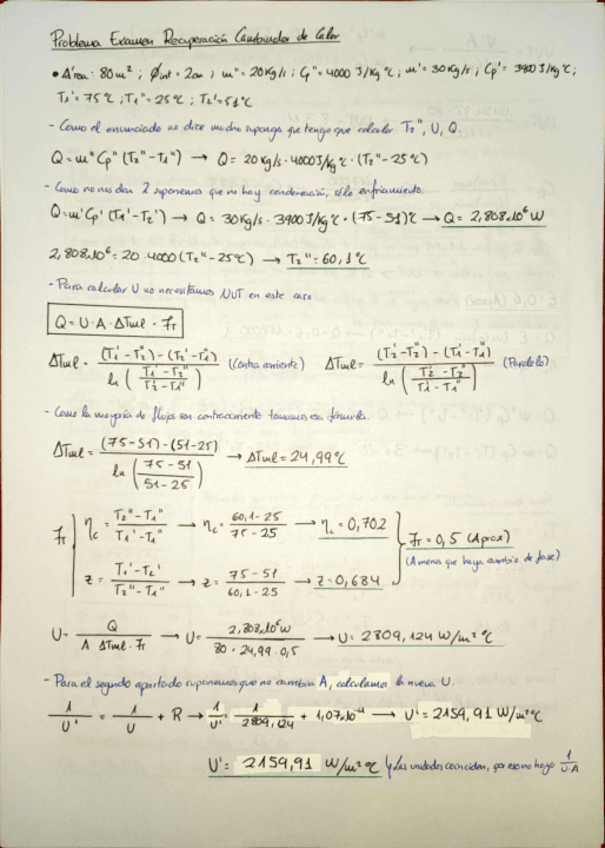 Problema Examen Recuperación Cambiador de Calor
• Área: 80m²; Øint = 2cm; m" = 20Kg/s; Cp" = 4000 J/Kg ℃; m' = 30Kg/s; Cp' = 3900 J/Kg ℃;
T₁' = 75℃; T₁" = 25℃; T₂' = 51℃
- Como el enunciado no dice mucho supongo que tengo que calcular T₂", U, Q.
Q = m" Cp" (T₂" - T₁") → Q = 20 Kg/s · 4000 J/Kg ℃ · (T₂" - 25℃)
- Como no nos dan 2 suponemos que no hay condensación, sólo enfriamiento.
Q = m' Cp' (T₁' - T₂') → Q = 30 Kg/s · 3900 J/Kg ℃ · (75 - 51)℃ → Q = 2,808x10⁶ W
2,808x10⁶ = 20 · 4000 (T₂" - 25℃) → T₂" = 60,1℃
- Para calcular U no necesitamos NUT en este caso
Q = U · A · ΔTml · Fт
ΔTml = (T₁' - T₂") - (T₂' - T₁") / ln ( T₁' - T₂" / T₂' - T₁" ) (Contracorriente) ΔTml = (T₂' - T₂") - (T₁' - T₁") / ln ( T₂' - T₂" / T₁' - T₁" ) (Paralelo)
- Como la mayoría de flujos son contracorriente tomamos esa fórmula.
ΔTml = (75 - 51) - (51 - 25) / ln ( 75 - 51 / 51 - 25 ) → ΔTml = 24,99℃
Fт ηc = T₂" - T₁" / T₁' - T₁" → ηc = 60,1 - 25 / 75 - 25 → ηc = 0,702
Fт = 0,5 (Aprox)
(A menos que haya cambio de fase)
z = T₁' - T₂' / T₂" - T₁" → z = 75 - 51 / 60,1 - 25 → z = 0,684
U = Q / A ΔTml · Fт → U = 2,808x10⁶ W / 80 · 24,99 · 0,5 → U = 2809,124 W/m² ℃
- Para el segundo apartado suponemos que no cambia A, calculamos la nueva U.
1 / U' = 1 / U + R → 1 / U' = 1 / 2809,124 + 1,07x10⁻⁴ → U' = 2159,91 W/m² ℃
U' = 2159,91 W/m² ℃ Las unidades coinciden, por eso no hago 1 / U·A